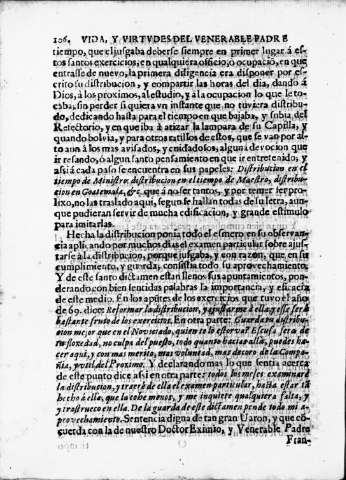 106. VIDA, Y VIRTVDES DEL VENERABLE PADRE
tiempo, que el juzgaba deberse siempre en primer lugar à es-
tos santos exercicios, en qualquiera oficio, ò ocupacio, en que
entrasse de nuevo, la primera diligencia era disponer por es-
crito su distribucion, y compartir las horas del dia, dando á
Dios, à los proximos, al estudio, y à la ocupacion lo que le to-
caba, sin perder si quiera vn instante que no tuviera distribu-
do, dedicando hasta para el tiempo en que bajaba, y subia del
Refectorio, y en que iba à atizar la lampara de su Capilla, y
quando bolvia, y para otros ratillos de estos, que se van por al-
to aun à los mas avisados, y cuidadosos, alguna devocion que
ir resando, ò algun santo pensamiento en que ir entretenido, y
assi à cada paso se encuentra en sus papeles: Distribucion en el
tiempo de Ministro: distribucion en el tiempo de Maestro, distribu-
cion en Goatemala, &c. que á no ser tantos, y por temer ser pro-
lixo, no las traslado aqui, segun se hallan todas de su letra, aun-
que pudieran servir de mucha edificasion, y grande estimulo
para imitarlas.
Hecha la distribucion ponia todo el esmero en su observan-
cia aplicando por muchos dias el examen particular sobre ajus-
tarse à la distribucion, porque juzgaba, y con razon, que en su
cumplimiento, y guarda, consistia todo su aprovechamiento.
Y de este santo dictamen estan llenos sus apuntamientos, pon-
derando con bien sentidas palabras la importancia, y eficacia
de este medio. En los apũtes de los exercicios que tuvo el año
de 69. dice: Reformar la distribucion, y ajustarme á ella, y esse será
bastante fruto de los exercicios. En otra parte: Guarda tu distribu-
cion mejor que en el Noviciado, quien te lo estorva? Escusa será de
tu floxedad, no culpa del puesto, todo quanto hacias allà, puedes ha-
cer aqui, y con mas merito, mas voluntad, mas decoro de la Compa-
ñia, y vtil del Proximo. Y declarando mas lo que sentia acerca
de este punto dice assi en otra parte: todos los meses examinaré
la distribucion, y traeré de ella el examen particular, hasta estar tã
hecho á ella, que la eche menos, y me inquiete qualquiera falta, y
y trastrueco en ella. De la guarda de este dictamen pende todo mi a-
provechamiento. Sentencia digna de tan gran Varon, y que cõ-
cuerda con la de nuestro Doctor Eximio, y Venerable Padre
Fran-